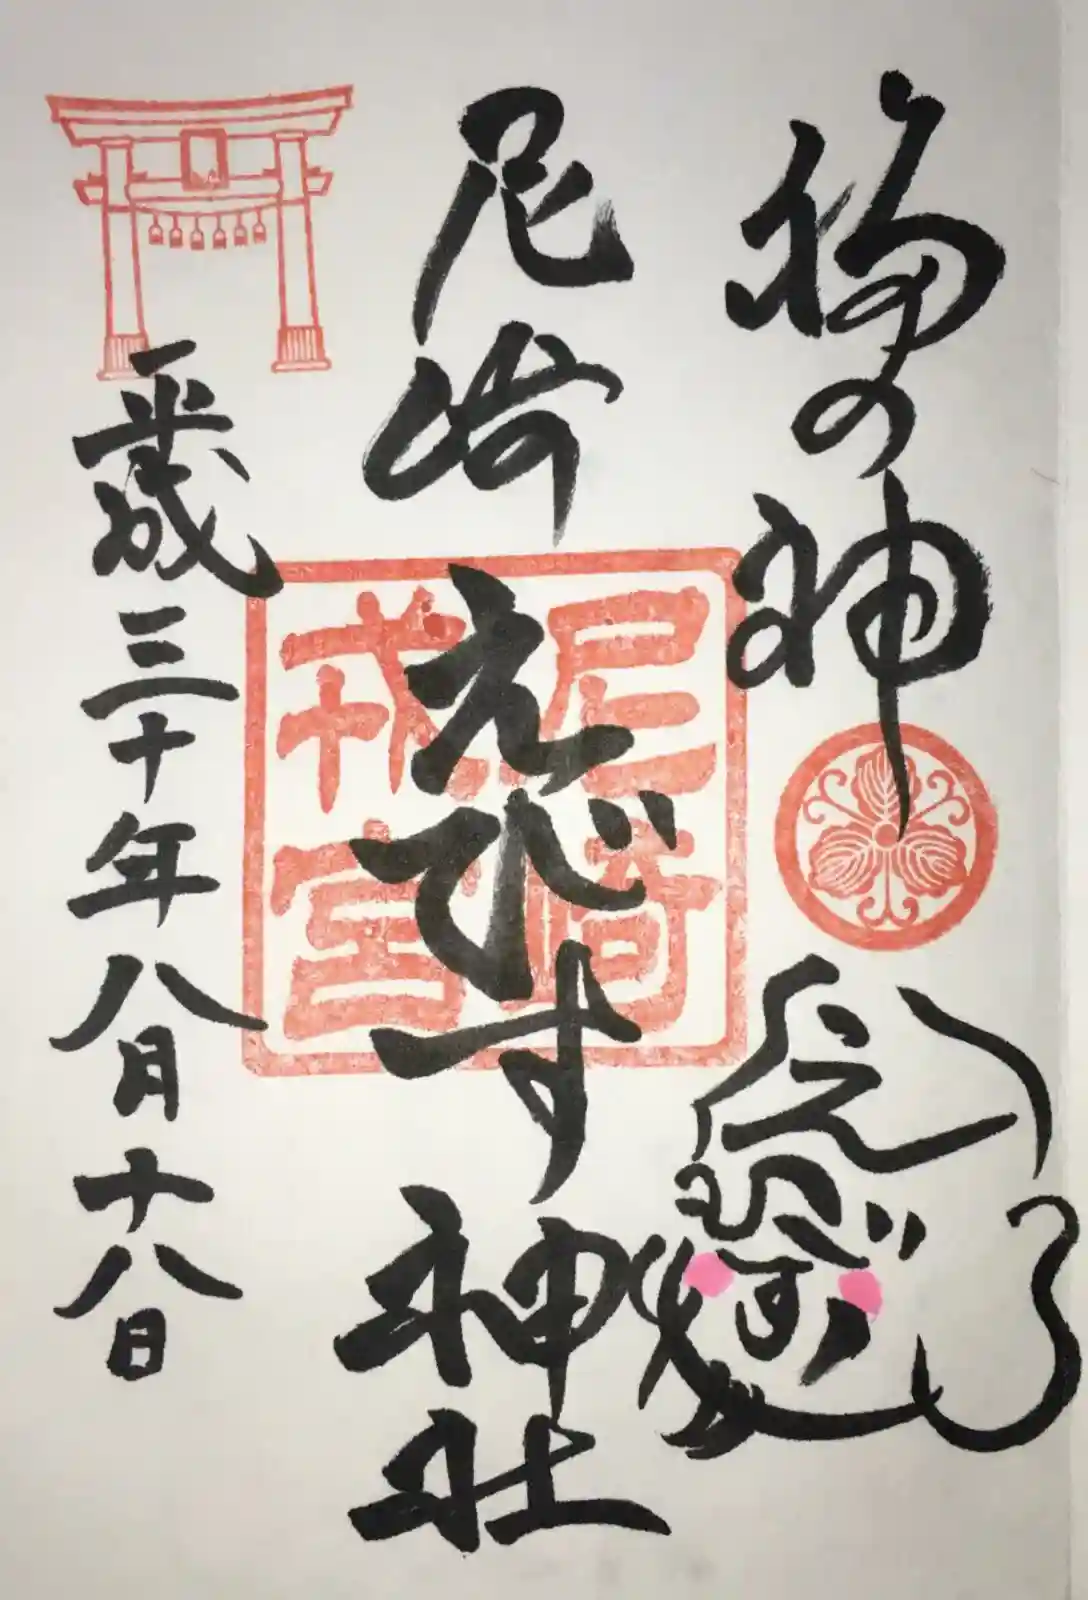 福の神
尼崎えびす神社
尼崎
戎宮
えびす
平成三十年八月十八日